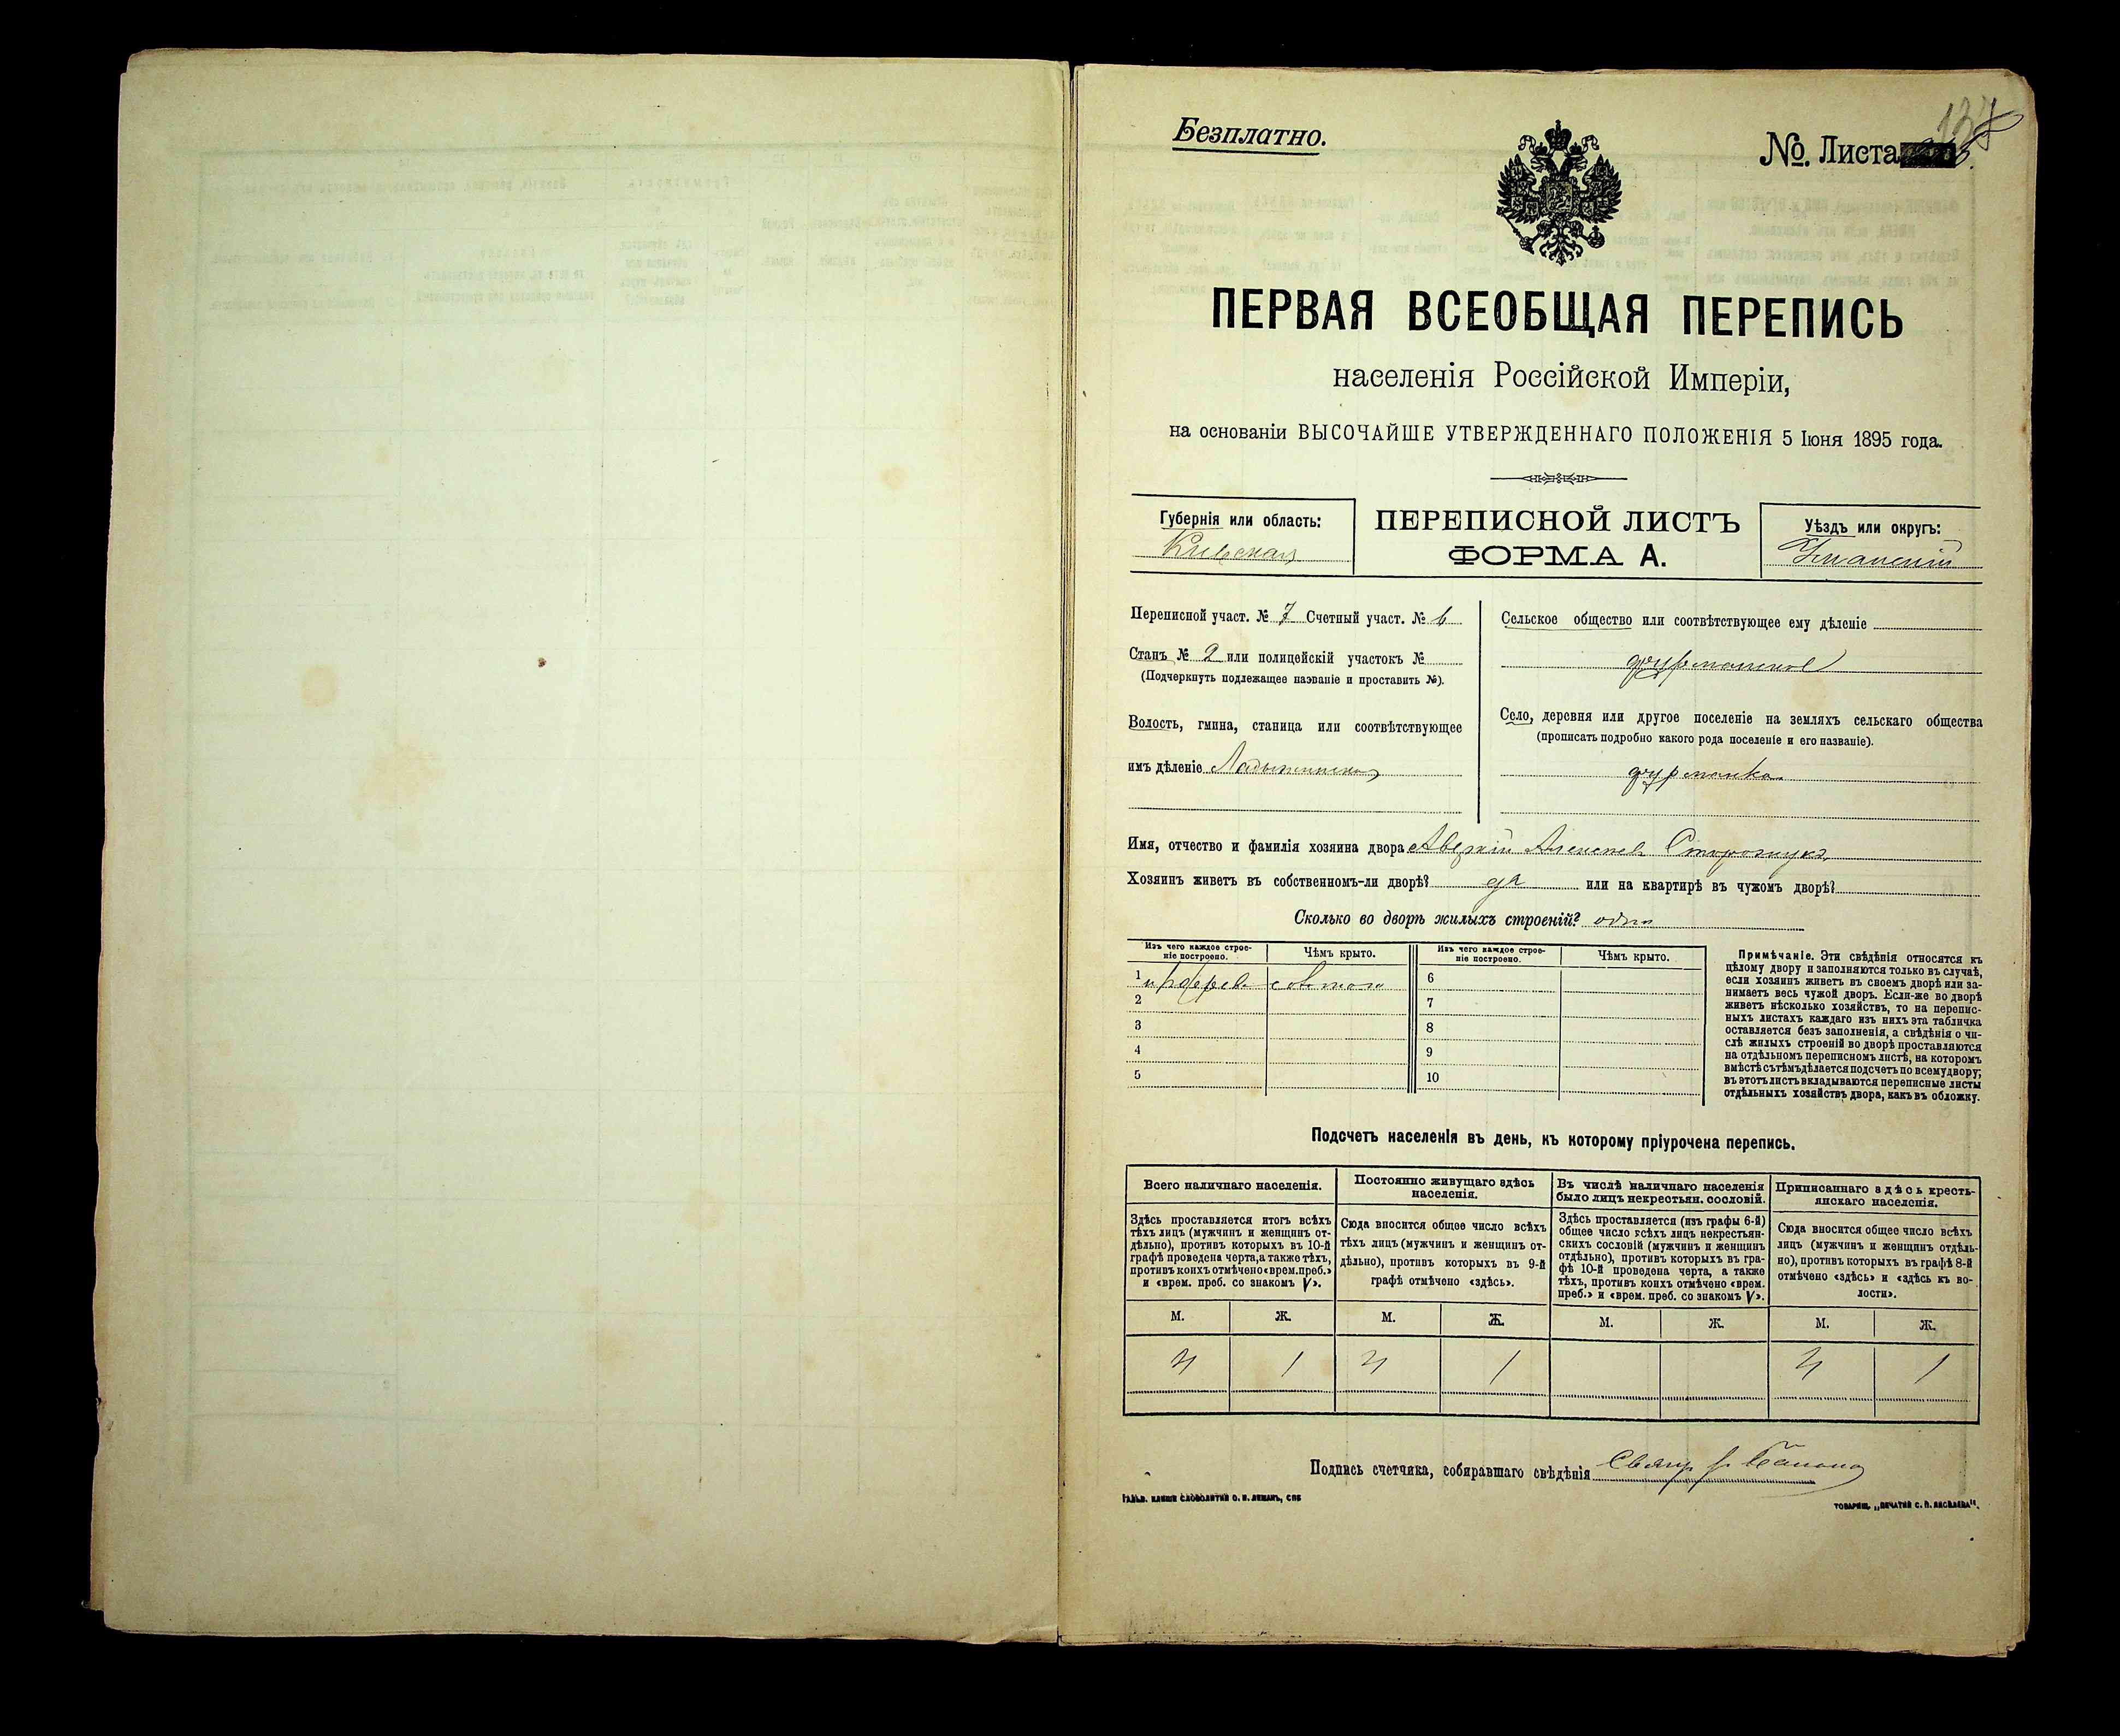 Безплатно.
137
№. Листа
ПЕРВАЯ ВСЕОБЩАЯ ПЕРЕПИСЬ
населенія Россійской Имперіи,
на основаніи ВЫСОЧАЙШЕ УТВЕРЖДЕННАГО ПОЛОЖЕНІЯ 5 Іюня 1895 года.
Губернія или область:
Кіевская
ПЕРЕПИСНОЙ ЛИСТЪ
ФОРМА А.
Уѣздъ или округъ:
Уманскій
Переписной участ. № 7 Счетный участ. № 6
Станъ № 2 или полицейскій участокъ №
(Подчеркнуть подлежащее названіе и проставить №).
Волость, гмина, станица или соотвѣтствующее
имъ дѣленіе Ладыжинская
Сельское общество или соотвѣтствующее ему дѣленіе
фурманское
Село, деревня или другое поселеніе на земляхъ сельскаго общества
(прописать подробно какого рода поселеніе и его названіе).
фурманка
Имя, отчество и фамилія хозяина двора Аверкій Алексеевъ Сторожукъ
Хозяинъ живетъ въ собственномъ-ли дворѣ? да или на квартирѣ въ чужомъ дворѣ?
Сколько во дворѣ жилыхъ строеній? одно
Изъ чего каждое строе-
ніе построено.
Чѣмъ крыто.
Изъ чего каждое строе-
ніе построено.
Чѣмъ крыто.
1 соломою
2
3
4
5
6
7
8
9
10
Примѣчаніе. Эти свѣдѣнія относятся къ
цѣлому двору и заполняются только въ случаѣ,
если хозяинъ живетъ въ своемъ дворѣ или за-
нимаетъ весь чужой дворъ. Если-же во дворѣ
живетъ нѣсколько хозяйствъ, то на перепис-
ныхъ листахъ каждаго изъ нихъ эта табличка
оставляется безъ заполненія, а свѣдѣнія о чи-
слѣ жилыхъ строеній во дворѣ проставляются
на отдѣльномъ переписномъ листѣ, на которомъ
вмѣстѣ съ тѣмъ дѣлается подсчетъ по всему двору;
въ этотъ листъ вкладываются переписные листы
отдѣльныхъ хозяйствъ двора, какъ въ обложку.
Подсчетъ населенія въ день, къ которому пріурочена перепись.
Всего наличнаго населенія.
Здѣсь проставляется итогъ всѣхъ
тѣхъ лицъ (мужчинъ и женщинъ от-
дѣльно), противъ которыхъ въ 10-й
графѣ проведена черта, а также тѣхъ,
противъ коихъ отмѣчено «врем. преб.»
и «врем. преб. со знакомъ V».
Постоянно живущаго здѣсь
населенія.
Сюда вносится общее число всѣхъ
тѣхъ лицъ (мужчинъ и женщинъ от-
дѣльно), противъ которыхъ въ 9-й
графѣ отмѣчено «здѣсь».
Въ числѣ наличнаго населенія
было лицъ некрестьян. сословій.
Здѣсь проставляется (изъ графы 6-й)
общее число всѣхъ лицъ некрестьян-
скихъ сословій (мужчинъ и женщинъ
отдѣльно), противъ которыхъ въ гра-
фѣ 10-й проведена черта, а также
тѣхъ, противъ коихъ отмѣчено «врем.
преб.» и «врем. преб. со знакомъ V».
Приписаннаго здѣсь кресть-
янскаго населенія.
Сюда вносится общее число всѣхъ
лицъ (мужчинъ и женщинъ отдѣль-
но), противъ которыхъ въ графѣ 8-й
отмѣчено «здѣсь» и «здѣсь къ во-
лости».
М. Ж. М. Ж. М. Ж. М. Ж.
4 1 4 1 4 1
Подпись счетчика, собиравшаго свѣдѣнія
ТОВАРИЩ. „ПЕЧАТНЯ С. П. ЯКОВЛЕВА".